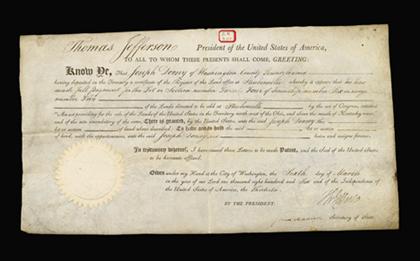 Thomas Jefferson President of the United States of America,
TO ALL TO WHOM THESE PRESENTS SHALL COME, GREETING:
KNOW YE, That Joseph Dorsey of Washington County Pennsylvania
having deposited in the Treasury a certificate of the Register of the Land office at Steubenville whereby it appears that he has
made full payment for the Lot or Section number Three Four of Township number
number
of the Lands directed to be sold at Steubenville by the act of Congress, entitled
"An act providing for the sale of the Lands of the United States in the Territory north west of the Ohio, and above the mouth of Kentucky river"
and of the acts amendatory of the same, There is granted, by the United States, unto the said Joseph Dorsey the
lot or section of land above described: To have and to hold the said lot or section
of land, with the appurtenances, unto the said Joseph Dorsey his heirs and assigns forever.
In testimony whereof, I have caused these Letters to be made Patent, and the Seal of the United States
to be hereunto affixed.
Given under my Hand at the City of Washington, the Sixth day of March
in the year of our Lord one thousand eight hundred and and of the Independence of
the United States of America, the Thirtieth
BY THE PRESIDENT: Th Jefferson
James Madison Secretary of State